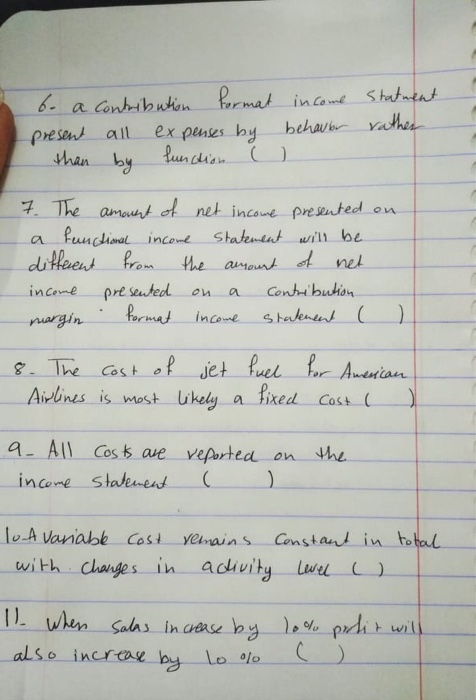 6- a Contribution format income Statment
present all expenses by behavbr rather
than by function ( )
7. The amount of net income presented on
a functional income statement will be
different from the amount of net
income presented on a Contribution
margin format income statement ( )
8- The Cost of jet fuel for American
Airlines is most likely a fixed cost ( )
9- All Costs are reported on the
income statement ( )
10-A variable cost remains Constant in total
with changes in activity level ( )
11- When Salas increase by 10% profit will
also increase by 10 % ( )